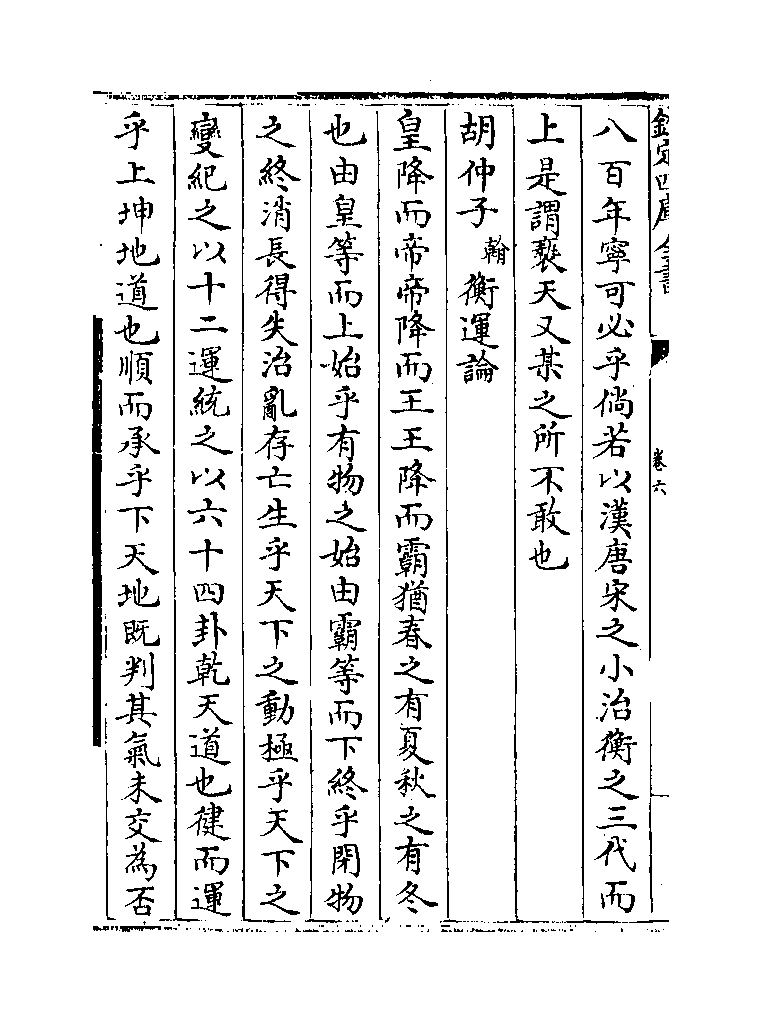 欽定四庫全書
卷六
八百年寧可必乎倘若以漢唐宋之小治衡之三代而
上是謂褻天又某之所不敢也
胡仲子翰衡運論
皇降而帝帝降而王王降而霸猶春之有夏秋之有冬
也由皇等而上始乎有物之始由霸等而下終乎閉物
之終消長得失治亂存亡生乎天下之動極乎天下之
變紀之以十二運統之以六十四卦乾天道也徤而運
乎上坤地道也順而承乎下天地既判其氣未交為否